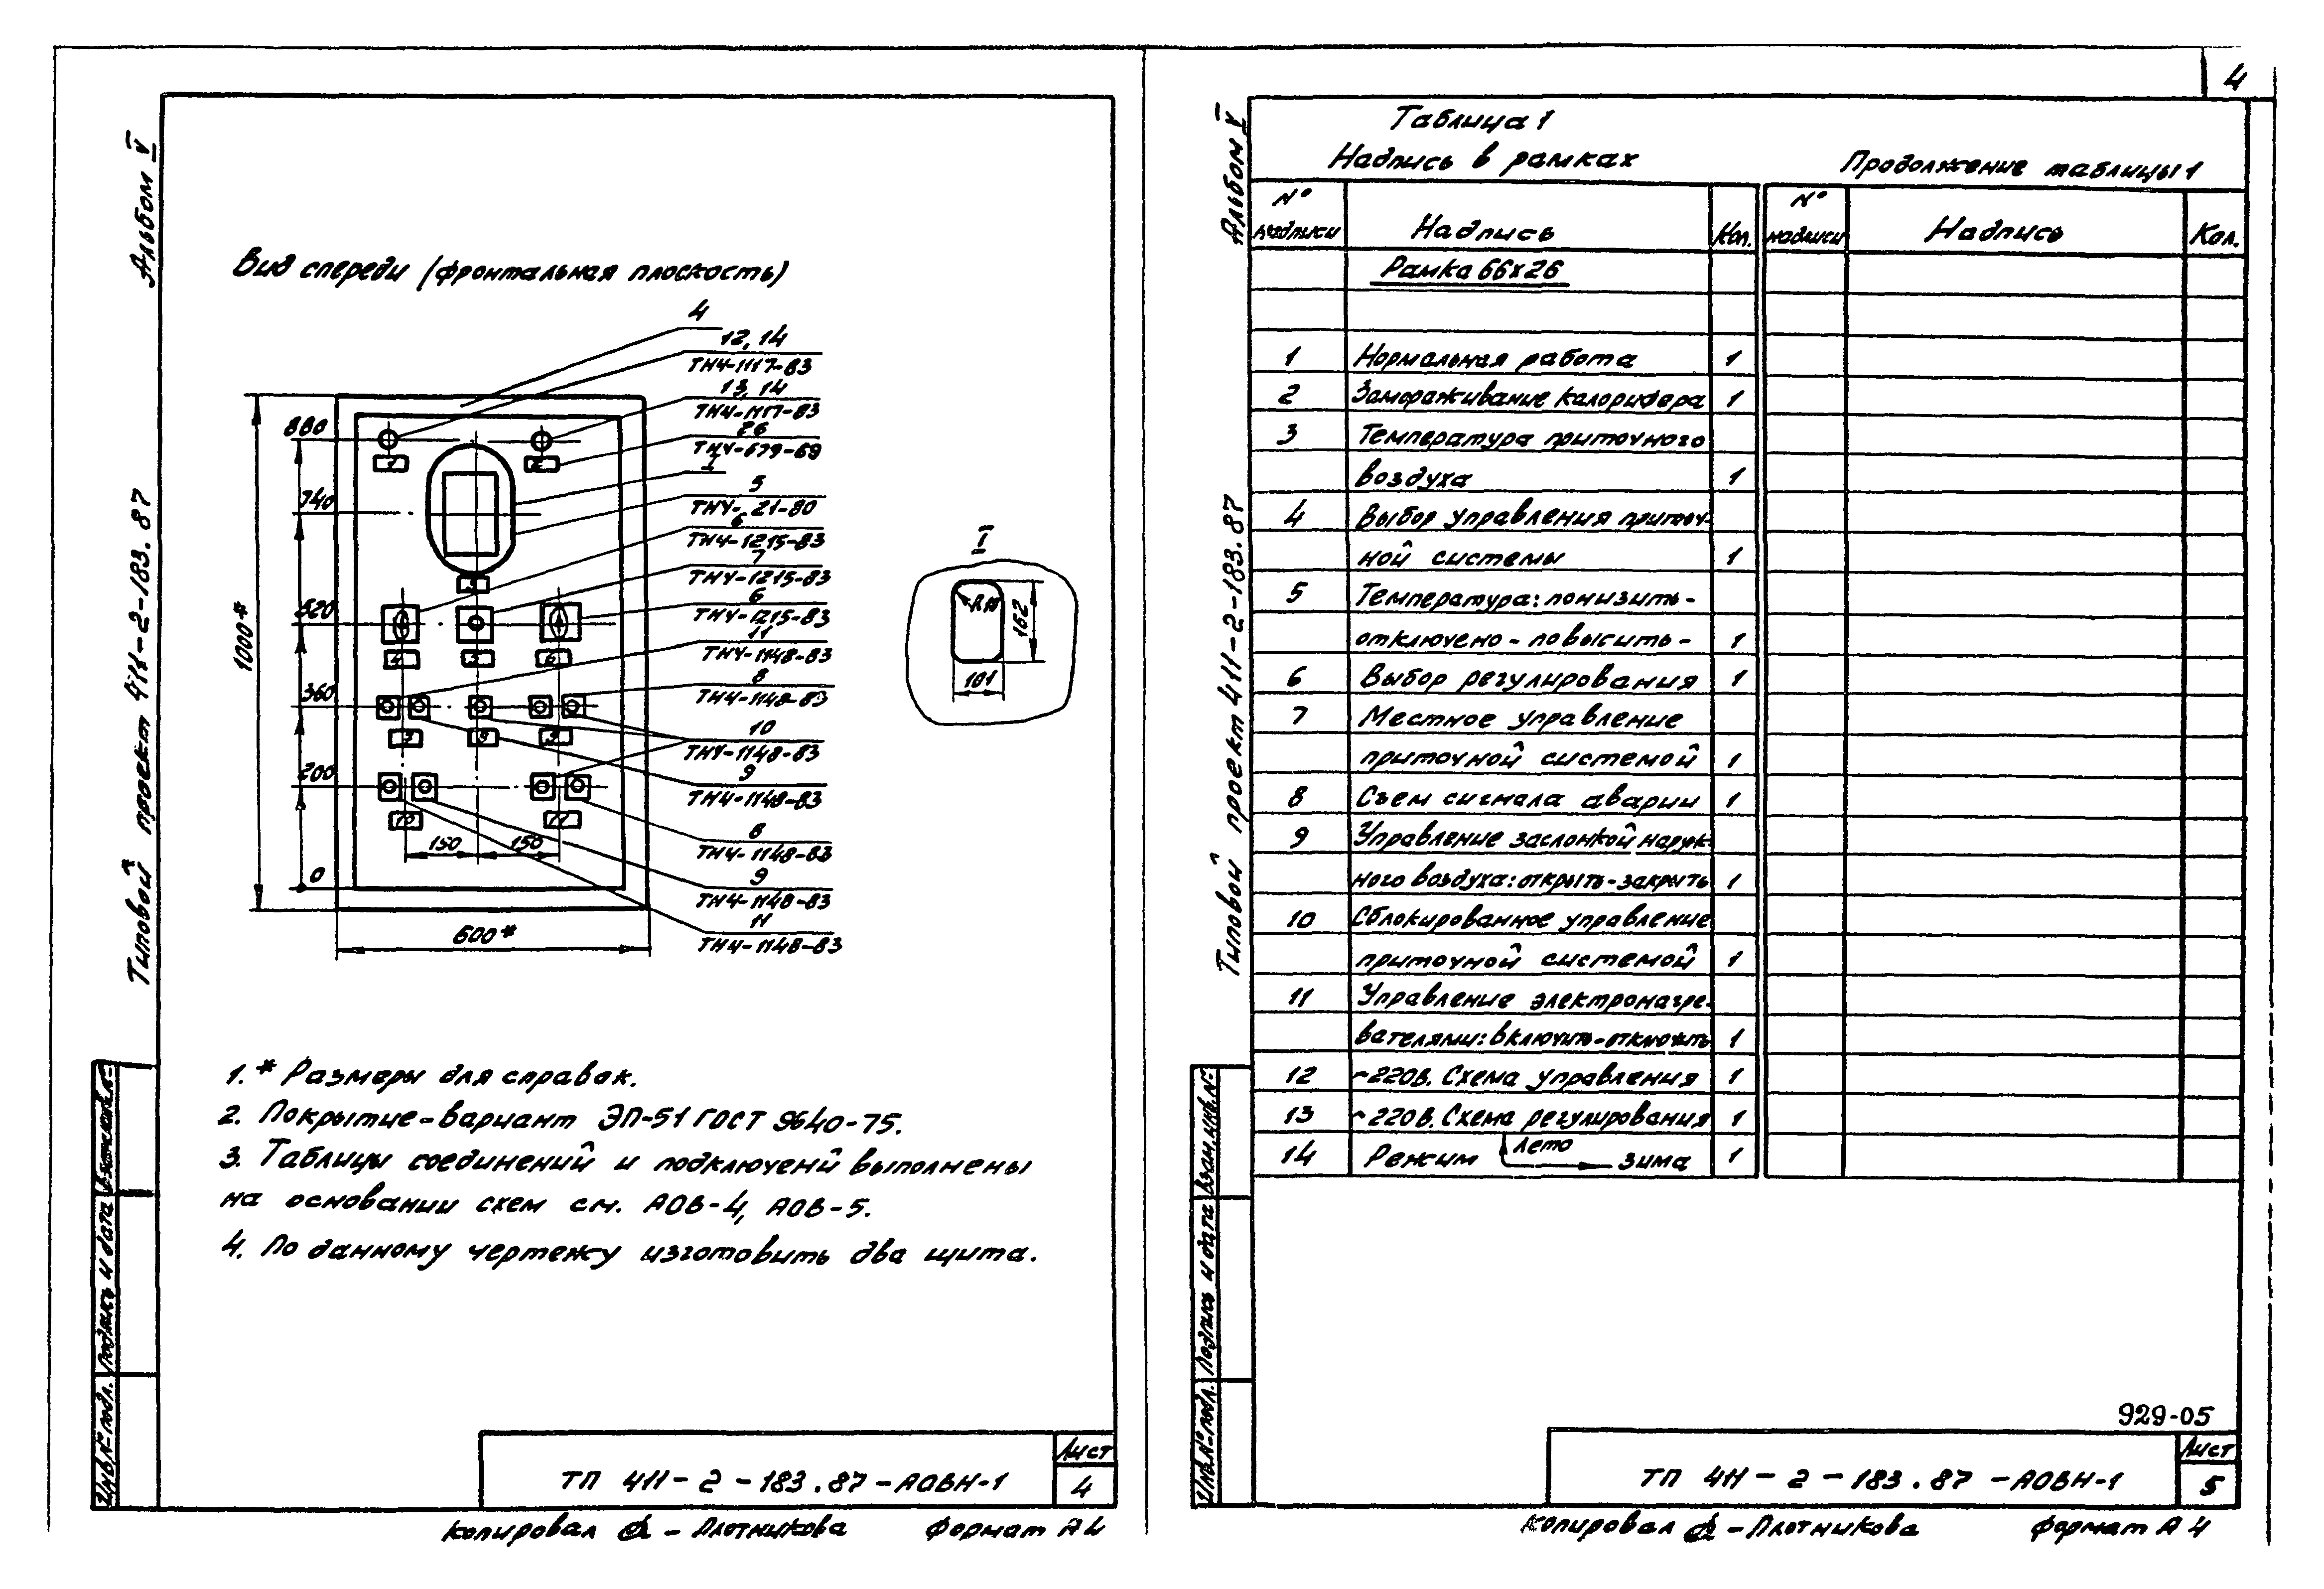 Альбом V
Типовой проект 411-2-183.87
Вид спереди (фронтальная плоскость)
4
12, 14
ТМ4-1117-83
13, 14
ТМ4-1117-83
26
ТМ4-679-69
I
5
ТМ4-21-80
6
ТМ4-1215-83
7
ТМ4-1215-83
6
ТМ4-1215-83
11
ТМ4-1148-83
8
ТМ4-1148-83
10
ТМ4-1148-83
9
ТМ4-1148-83
8
ТМ4-1148-83
9
ТМ4-1148-83
11
ТМ4-1148-83
880
740
520
360
200
0
1000*
600*
150 150
1 2
3
4 5 6
8
10 11
I
162
101
1. * Размеры для справок.
2. Покрытие-вариант ЭП-51 ГОСТ 9640-75.
3. Таблицы соединений и подключений выполнены
на основании схем см. АОВ-4, АОВ-5.
4. По данному чертежу изготовить два щита.
Инв.№подл. Подпись и дата Взам.инв.№
ТП 411-2-183.87-АОВН-1
Лист
4
Копировал - Плотникова Формат А4
4
Альбом V
Типовой проект 411-2-183.87
Таблица 1
Надпись в рамках
Продолжение таблицы 1
№ надписи Надпись Кол. № надписи Надпись Кол.
Рамка 66х26
1 Нормальная работа 1
2 Замораживание калорифера 1
3 Температура приточного
воздуха 1
4 Выбор управления приточ-
ной системы 1
5 Температура: понизить-
отключено - повысить - 1
6 Выбор регулирования 1
7 Местное управление
приточной системой 1
8 Съем сигнала аварии 1
9 Управление заслонкой наруж-
ного воздуха: открыть-закрыть 1
10 Сблокированное управление
приточной системой 1
11 Управление электронагре-
вателями: включить-отключить 1
12 ~220В. Схема управления 1
13 ~220В. Схема регулирования 1
14 Режим Лето зима 1
Инв.№подл. Подпись и дата Взам.инв.№
929-05
ТП 411-2-183.87-АОВН-1
Лист
5
Копировал - Плотникова Формат А4